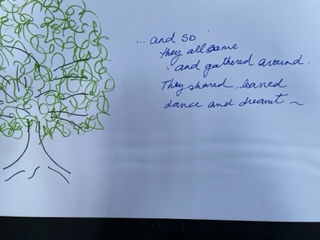 ... and so
they all came
and gathered around.
They shared, learned
dance and dreamt ~